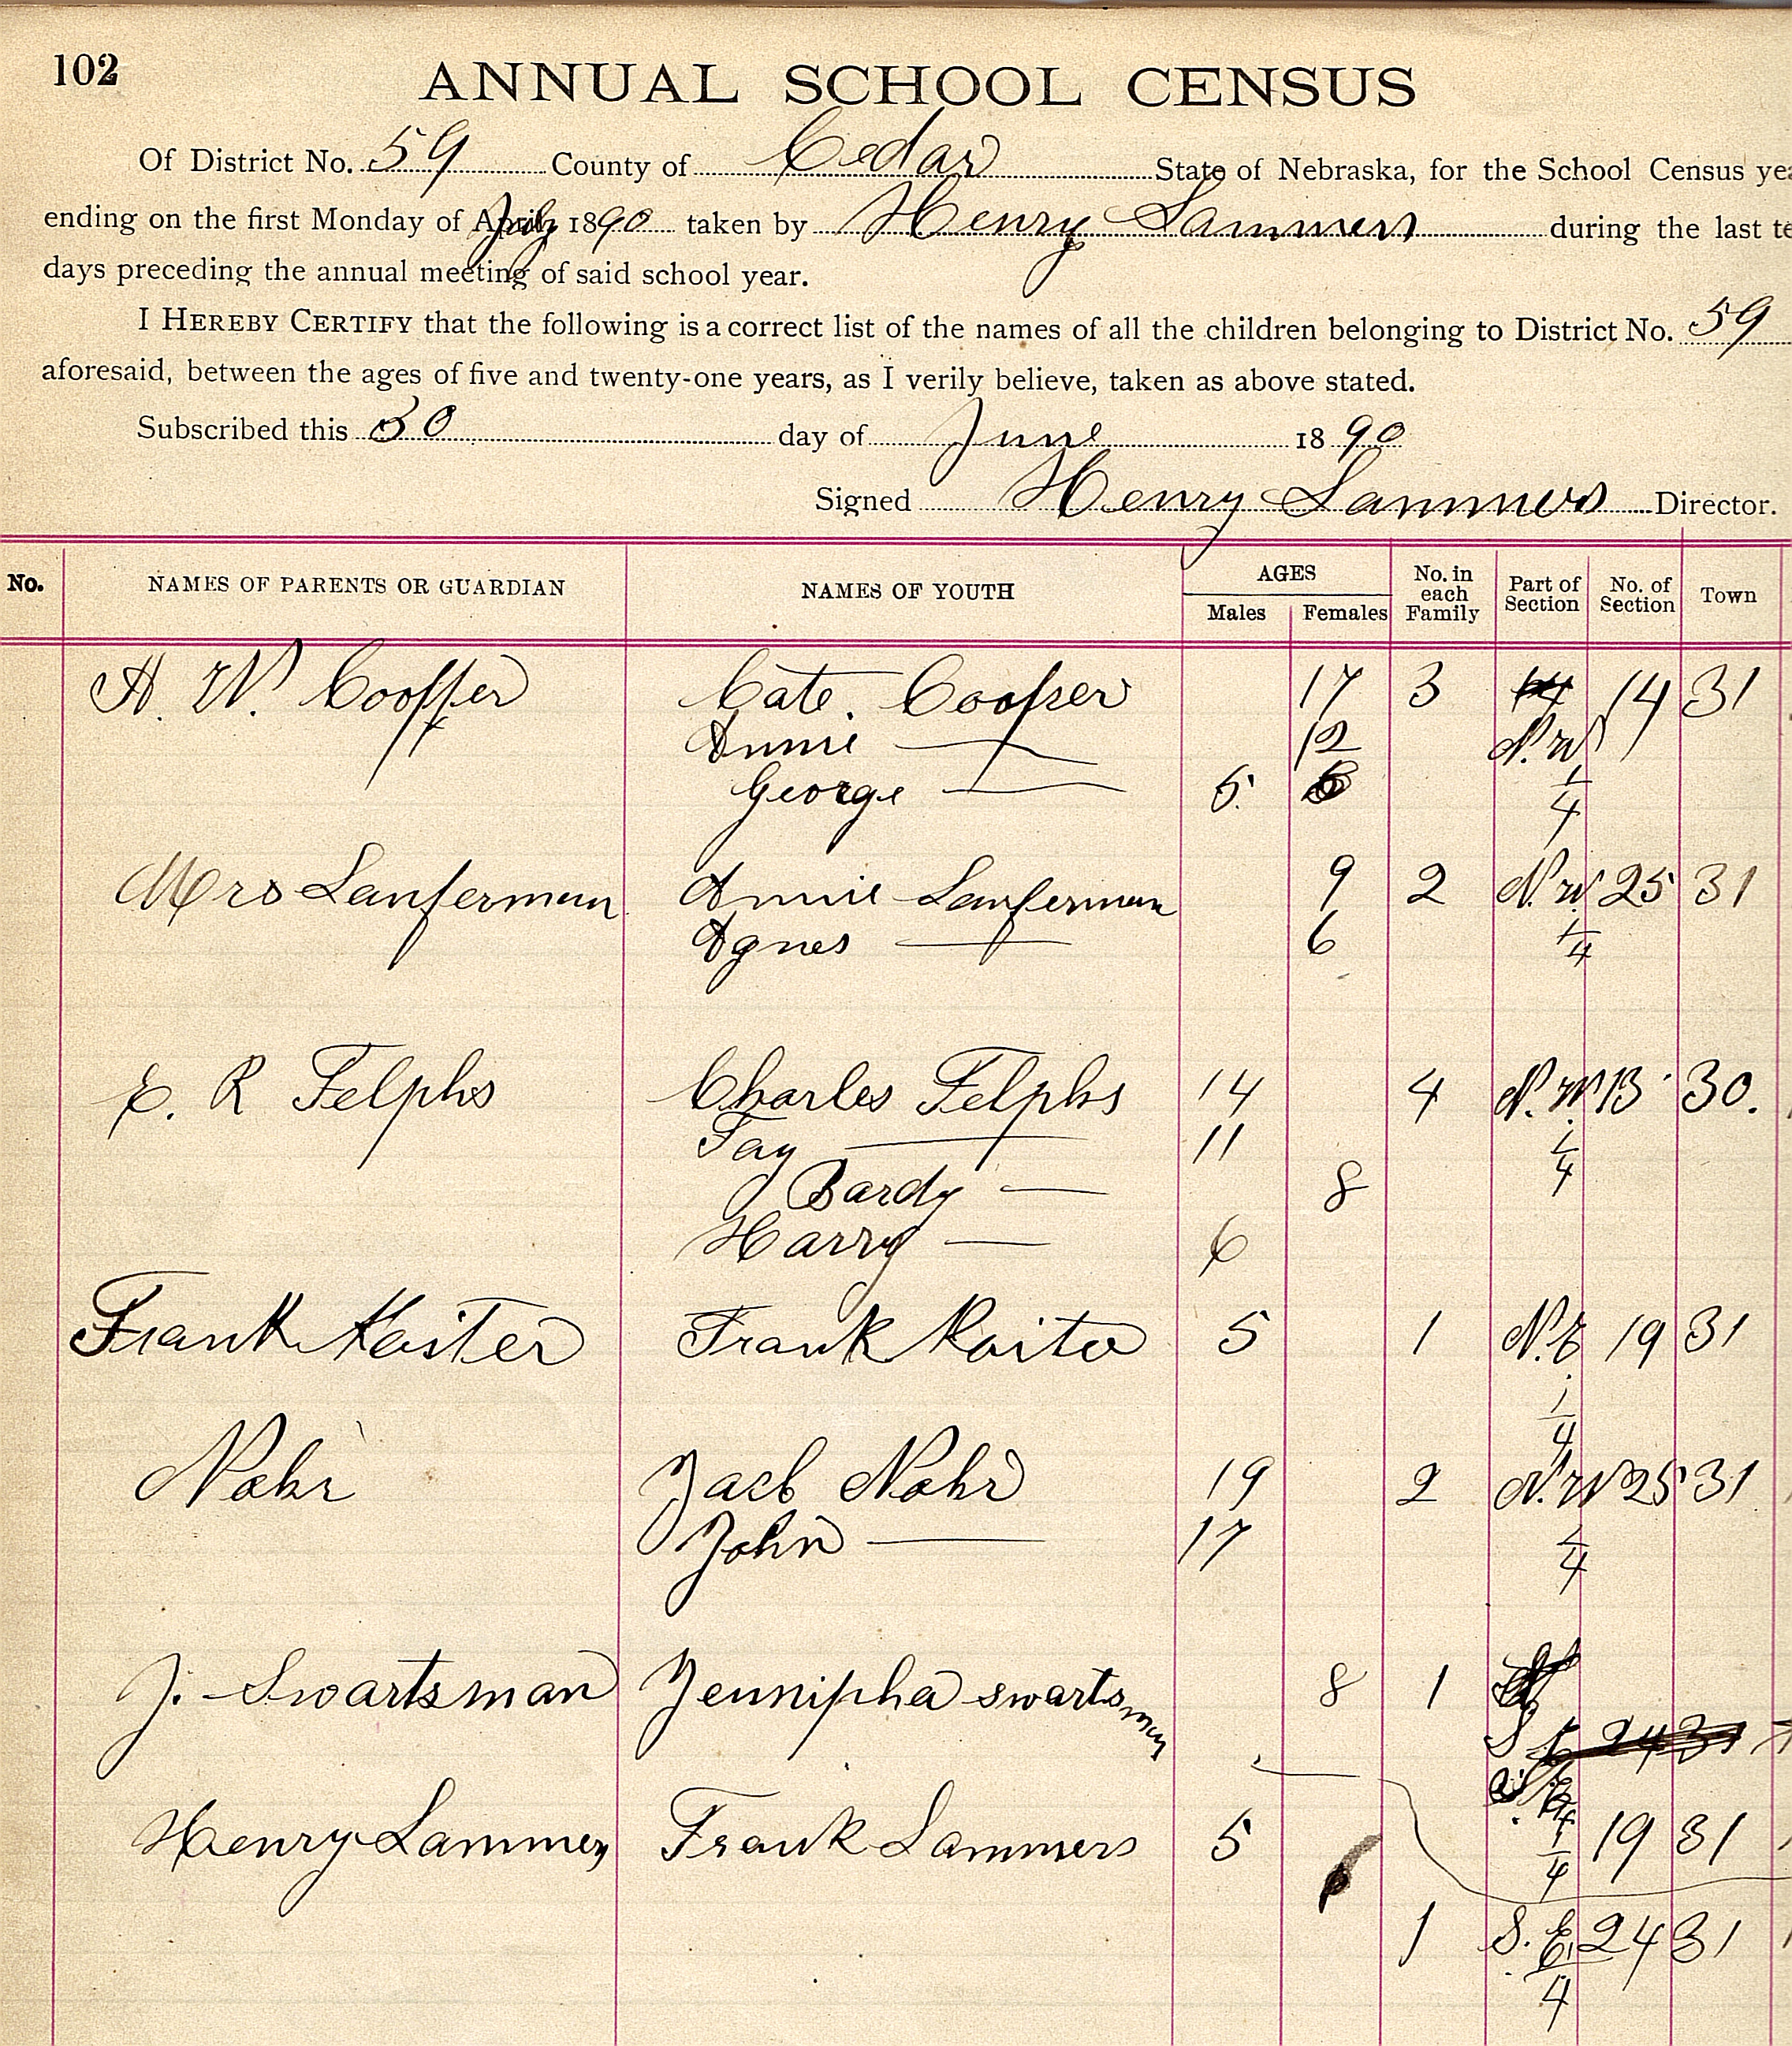 102
ANNUAL SCHOOL CENSUS
Of District No. 59 County of Cedar State of Nebraska, for the School Census yea
ending on the first Monday of July 1890 taken by Henry Lammers during the last te
days preceding the annual meeting of said school year.
I HEREBY CERTIFY that the following is a correct list of the names of all the children belonging to District No. 59
aforesaid, between the ages of five and twenty-one years, as I verily believe, taken as above stated.
Subscribed this 30 day of June 1890
Signed Henry Lammers Director.
No. NAMES OF PARENTS OR GUARDIAN NAMES OF YOUTH AGES Males Females No. in each Family Part of Section No. of Section Town
H. W. Cooper Cate. Cooper 17 3 14 31
Annie — 12 N.W
George — 5. 1/4
Mrs Lanferman Annie Lanferman 9 2 N.W. 25 31
Agnes — 6 1/4
E. R Felphs Charles Felphs 14 4 N.W 13 30.
Fay — 11 1/4
Bardy — 8
Harry — 6
Frank Koster Frank Koiter 5 1 N.E 19 31
1/4
Nohr Jacb Nohr 19 2 N.W 25 31
John — 17 1/4
J. Swartsman Jennipha swartsman 8 1
24 31
Henry Lammers Frank Lammers 5 1/4 19 31
1 S.E. 24 31
1/4